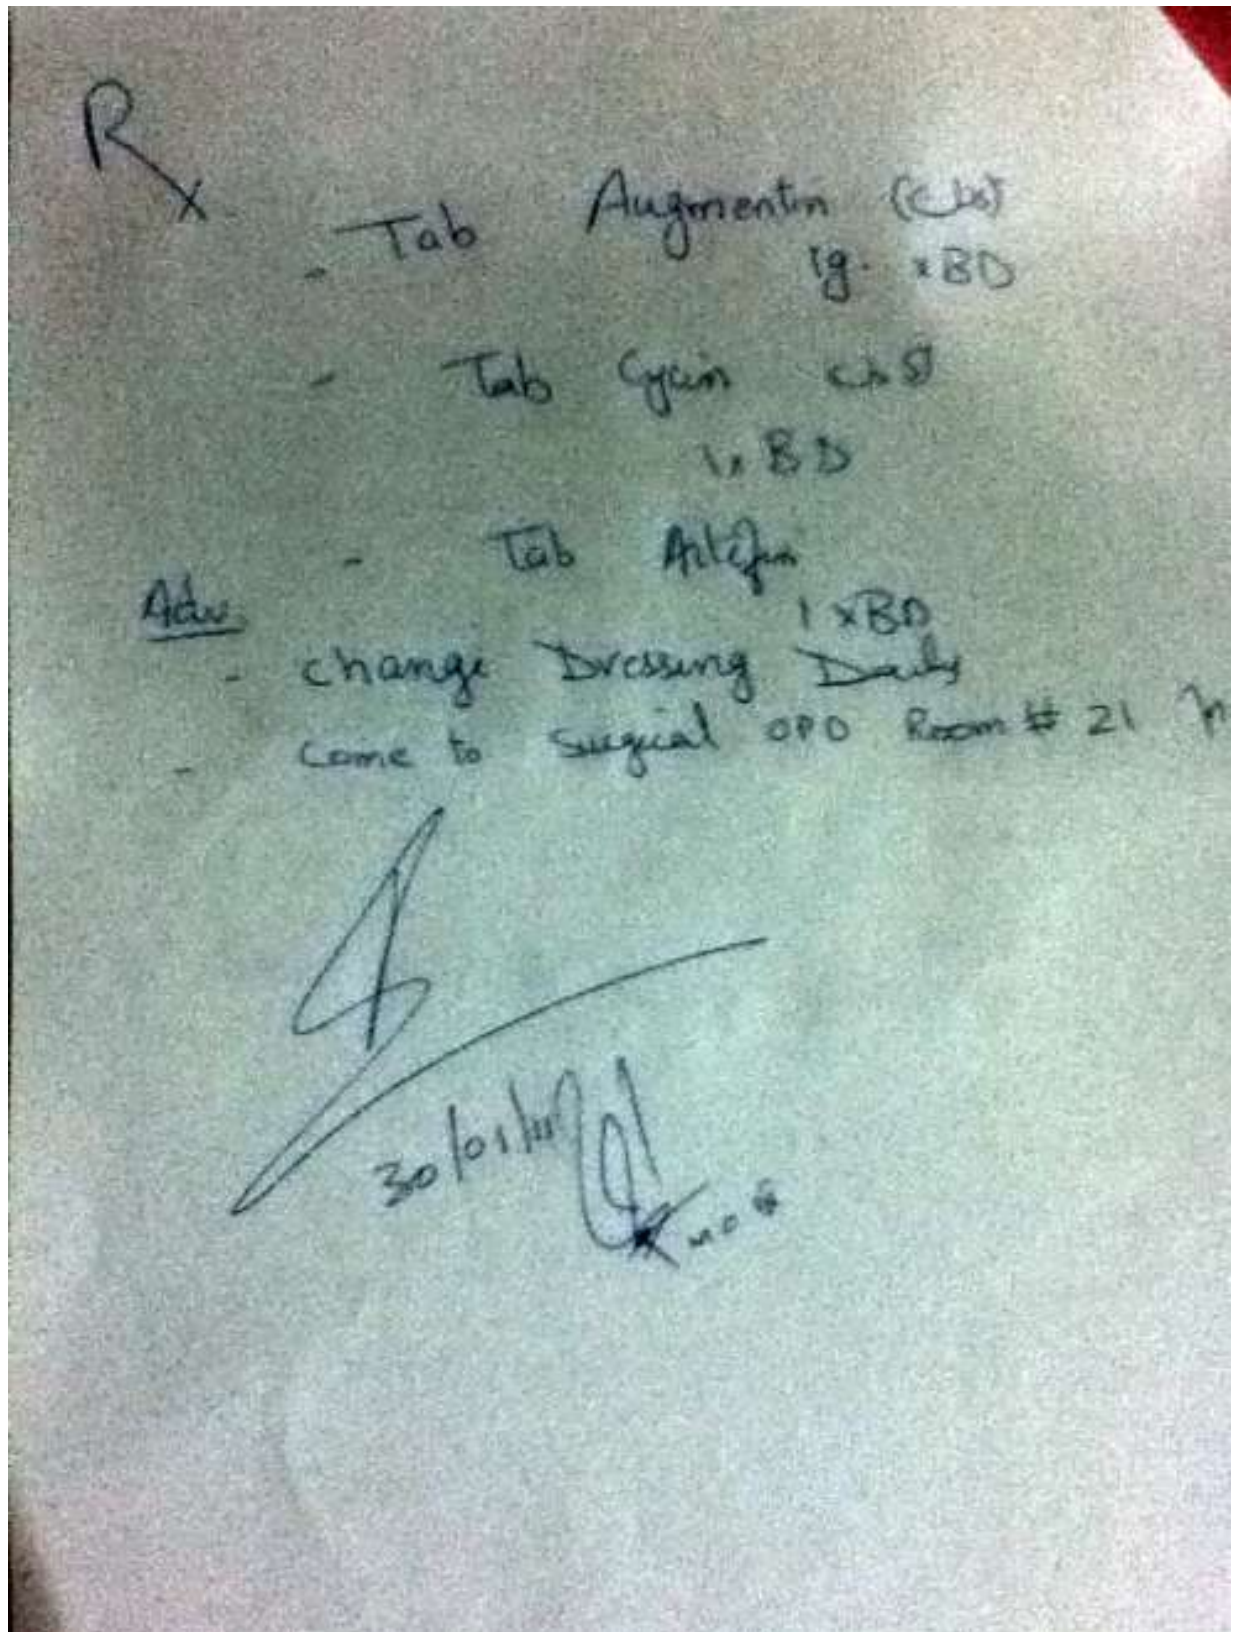 Rx
- Tab Augmentin
1g. x BD
- Tab
1 x BD
- Tab
1 x BD
Adv
- change Dressing Daily
- come to Surgical OPD Room # 21
30/01/11